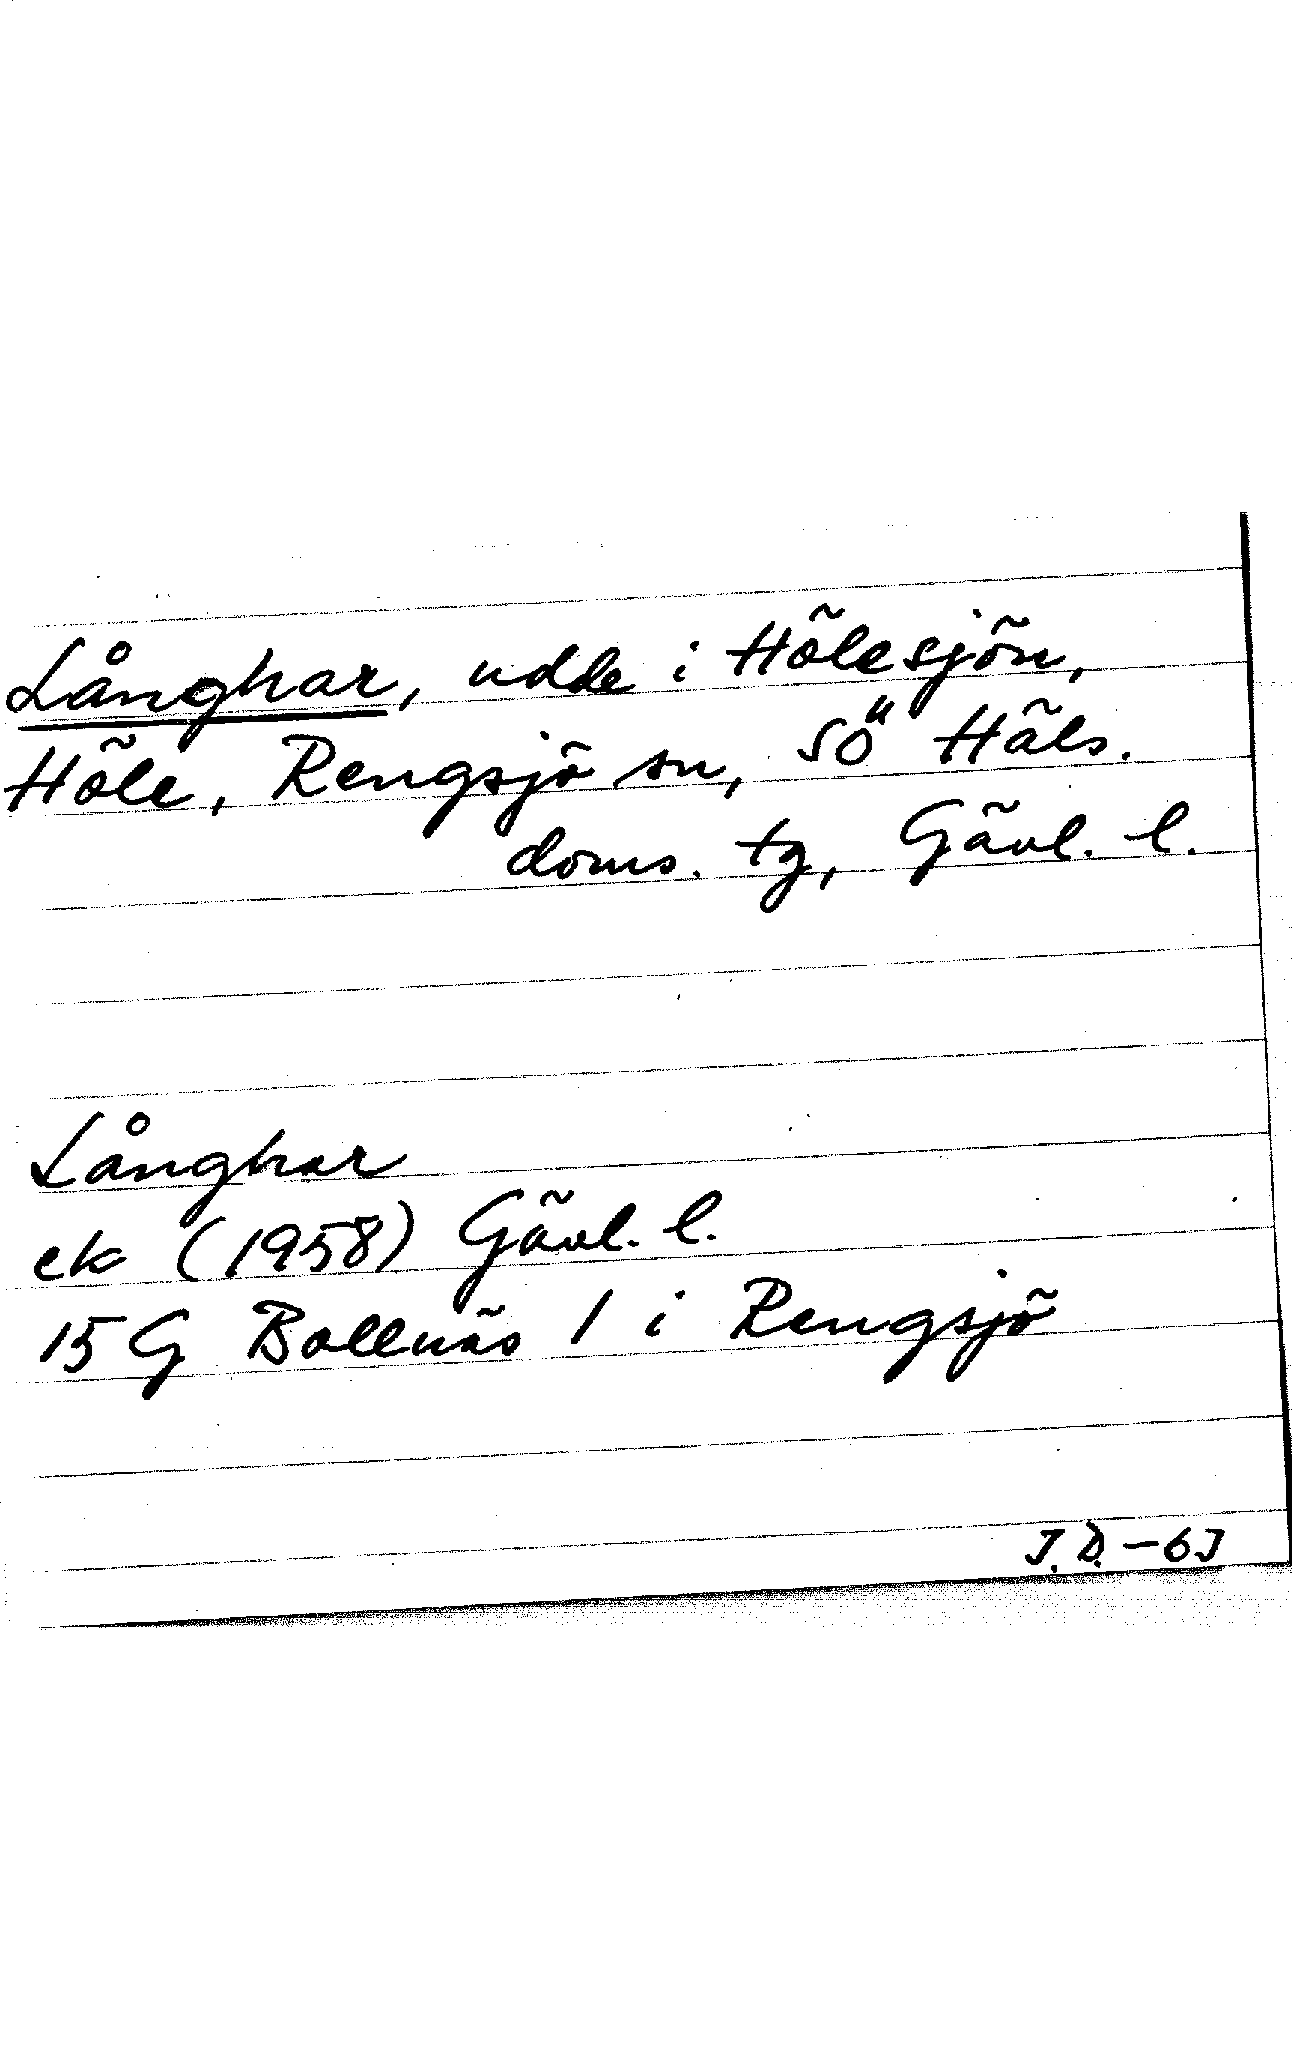 Långhar, udde i Hölesjön,
Höle, Rengsjö sn, SÖ Häls.
doms. tg, Gävl. l.
Långhar
ek (1958) Gävl. l.
15 G Bollnäs 1 i Rengsjö
J.D. - 63